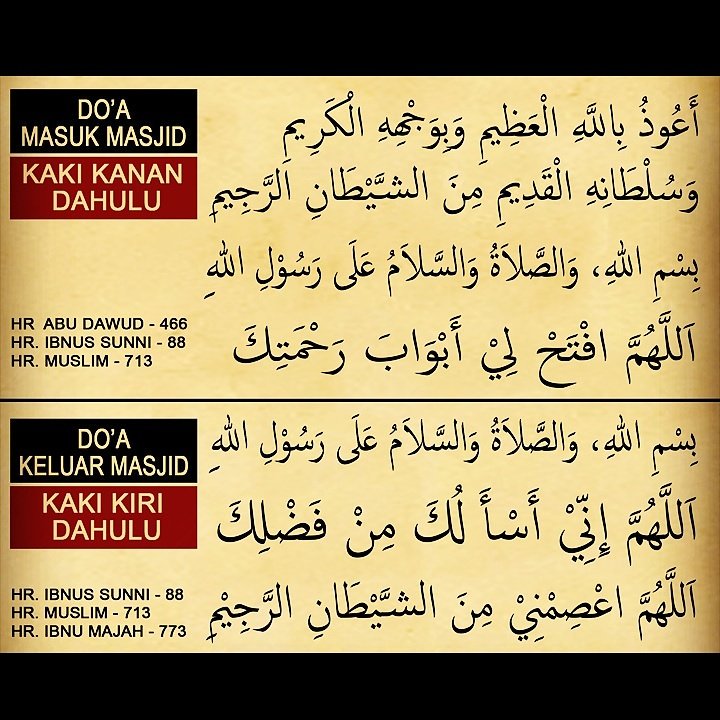 DO'A
MASUK MASJID
KAKI KANAN
DAHULU
أَعُوذُ بِاللَّهِ الْعَظِيمِ وَبِوَجْهِهِ الْكَرِيمِ
وَسُلْطَانِهِ الْقَدِيمِ مِنَ الشَّيْطَانِ الرَّجِيمِ
بِسْمِ اللهِ، وَالصَّلَاةُ وَالسَّلَامُ عَلَى رَسُوْلِ اللهِ
اَللَّهُمَّ افْتَحْ لِيْ أَبْوَابَ رَحْمَتِكَ
HR ABU DAWUD - 466
HR. IBNUS SUNNI - 88
HR. MUSLIM - 713
DO'A
KELUAR MASJID
KAKI KIRI
DAHULU
بِسْمِ اللهِ، وَالصَّلَاةُ وَالسَّلَامُ عَلَى رَسُوْلِ اللهِ
اَللَّهُمَّ إِنِّيْ أَسْأَ لُكَ مِنْ فَضْلِكَ
اَللَّهُمَّ اعْصِمْنِيْ مِنَ الشَّيْطَانِ الرَّجِيْمِ
HR. IBNUS SUNNI - 88
HR. MUSLIM - 713
HR. IBNU MAJAH - 773